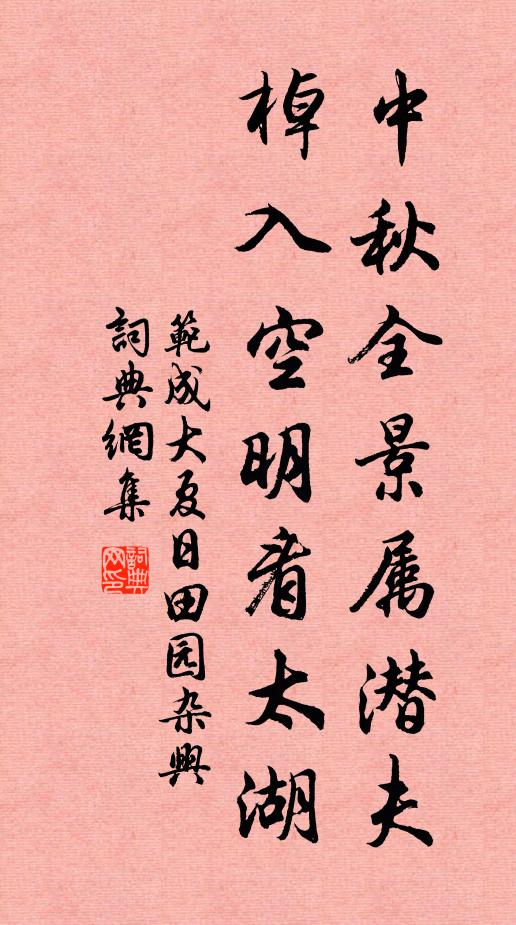 中秋全景属潜夫
棹入空明看太湖
範成大夏日田园杂興
詞典網集
詞典网印